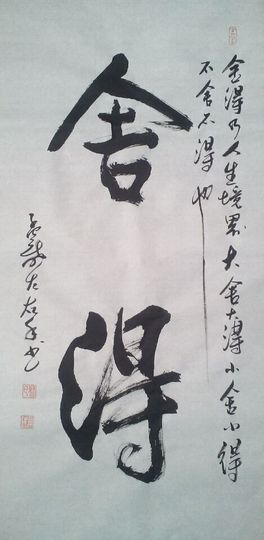 舍得乃人生境界大舍大得小舍小得
不舍不得也
舍得
左右手书